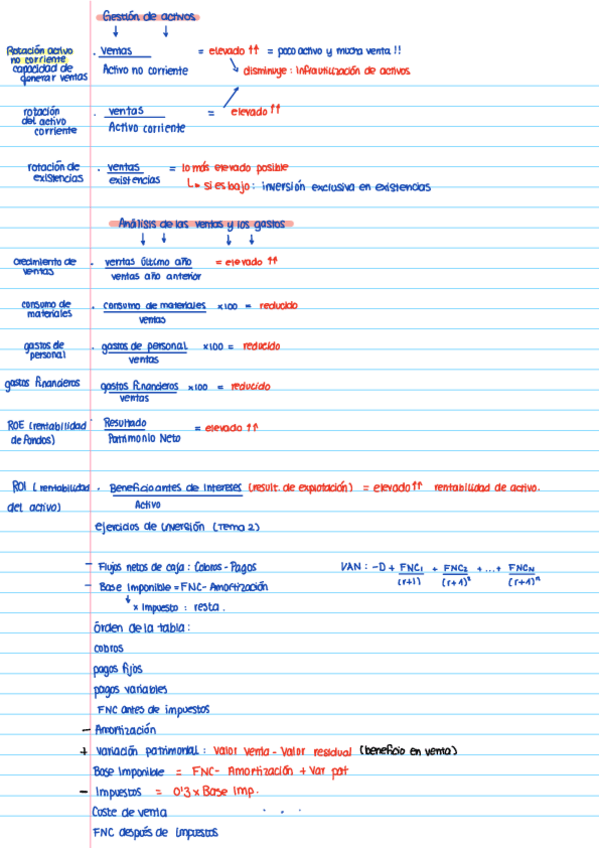 Gestión de activos
Rotación activo no corriente capacidad de generar ventas · ventas / Activo no corriente = elevado ↑↑ = poco activo y mucha venta !!
↘ disminuye : infrautilización de activos
rotación del activo corriente · ventas / Activo corriente = elevado ↑↑
rotación de existencias · ventas / existencias = lo más elevado posible
↳ si es bajo : inversión exclusiva en existencias
Análisis de las ventas y los gastos
crecimiento de ventas · ventas último año / ventas año anterior = elevado ↑↑
consumo de materiales · consumo de materiales / ventas x100 = reducido
gastos de personal · gastos de personal / ventas x100 = reducido
gastos financieros gastos financieros / ventas x100 = reducido
ROE (rentabilidad de fondos) · Resultado / Patrimonio Neto = elevado ↑↑
ROI (rentabilidad del activo) · Beneficio antes de intereses / Activo (result. de explotación) = elevado ↑↑ rentabilidad de activo.
ejercicios de inversión (Tema 2)
- Flujos netos de caja : Cobros - Pagos
VAN : -D + FNC1 / (r+1) + FNC2 / (r+1)² + ... + FNCN / (r+1)ⁿ
- Base imponible = FNC - Amortización
↓ x impuesto : resta.
Órden de la tabla :
cobros
pagos fijos
pagos variables
FNC antes de impuestos
- Amortización
+ variación patrimonial : valor venta - valor residual (beneficio en venta)
Base imponible = FNC - Amortización + Var pat
- Impuestos = 0'3 x Base Imp.
Coste de venta . . .
FNC después de impuestos